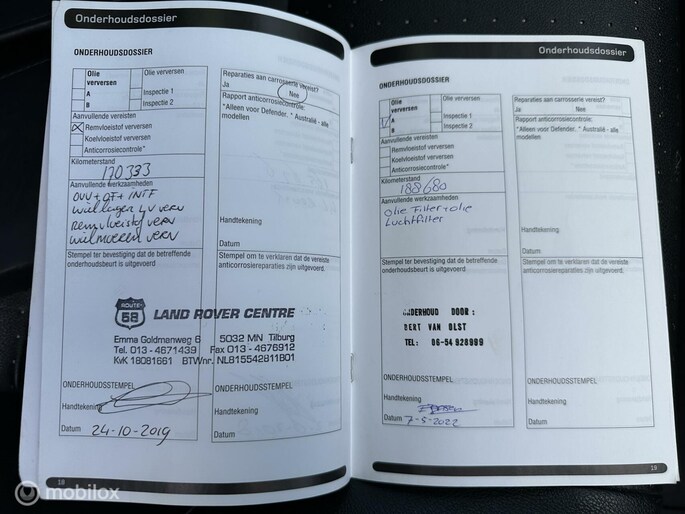 Onderhoudsdossier
ONDERHOUDSDOSSIER
Olie verversen
Olie verversen
A
Inspectie 1
B
Inspectie 2
Aanvullende vereisten
Remvloeistof verversen
Koelvloeistof verversen
Anticorrosiecontrole*
Kilometerstand
170333
Aanvullende werkzaamheden
OVV + OF + INTF
wiellager LV verv
Remvloeistof verv
wielmoeren verv
Stempel ter bevestiging dat de betreffende
onderhoudsbeurt is uitgevoerd
ROUTE 58 LAND ROVER CENTRE
Emma Goldmanweg 6 5032 MN Tilburg
Tel. 013 - 4671439 Fax 013 - 4676912
KvK 18081661 BTWnr. NL815542811B01
ONDERHOUDSSTEMPEL
Handtekening
Datum 24-10-2019
Reparaties aan carrosserie vereist?
Ja Nee
Rapport anticorrosiecontrole:
*Alleen voor Defender. * Australië - alle
modellen
Handtekening
Datum
Stempel om te verklaren dat de vereiste
anticorrosiereparaties zijn uitgevoerd.
ONDERHOUDSSTEMPEL
Handtekening
Datum
18
Onderhoudsdossier
ONDERHOUDSDOSSIER
Olie
verversen
Olie verversen
A
Inspectie 1
B
Inspectie 2
Aanvullende vereisten
Remvloeistof verversen
Koelvloeistof verversen
Anticorrosiecontrole*
Kilometerstand
188680
Aanvullende werkzaamheden
olie Filter + olie
Luchtfilter
Stempel ter bevestiging dat de betreffende
onderhoudsbeurt is uitgevoerd
ONDERHOUD DOOR:
BERT VAN OLST
TEL: 06-54 928999
ONDERHOUDSSTEMPEL
Handtekening
Datum 7-5-2022
Reparaties aan carrosserie vereist?
Ja Nee
Rapport anticorrosiecontrole:
*Alleen voor Defender. * Australië - alle
modellen
Handtekening
Datum
Stempel om te verklaren dat de vereiste
anticorrosiereparaties zijn uitgevoerd.
ONDERHOUDSSTEMPEL
Handtekening
Datum
19
mobilox